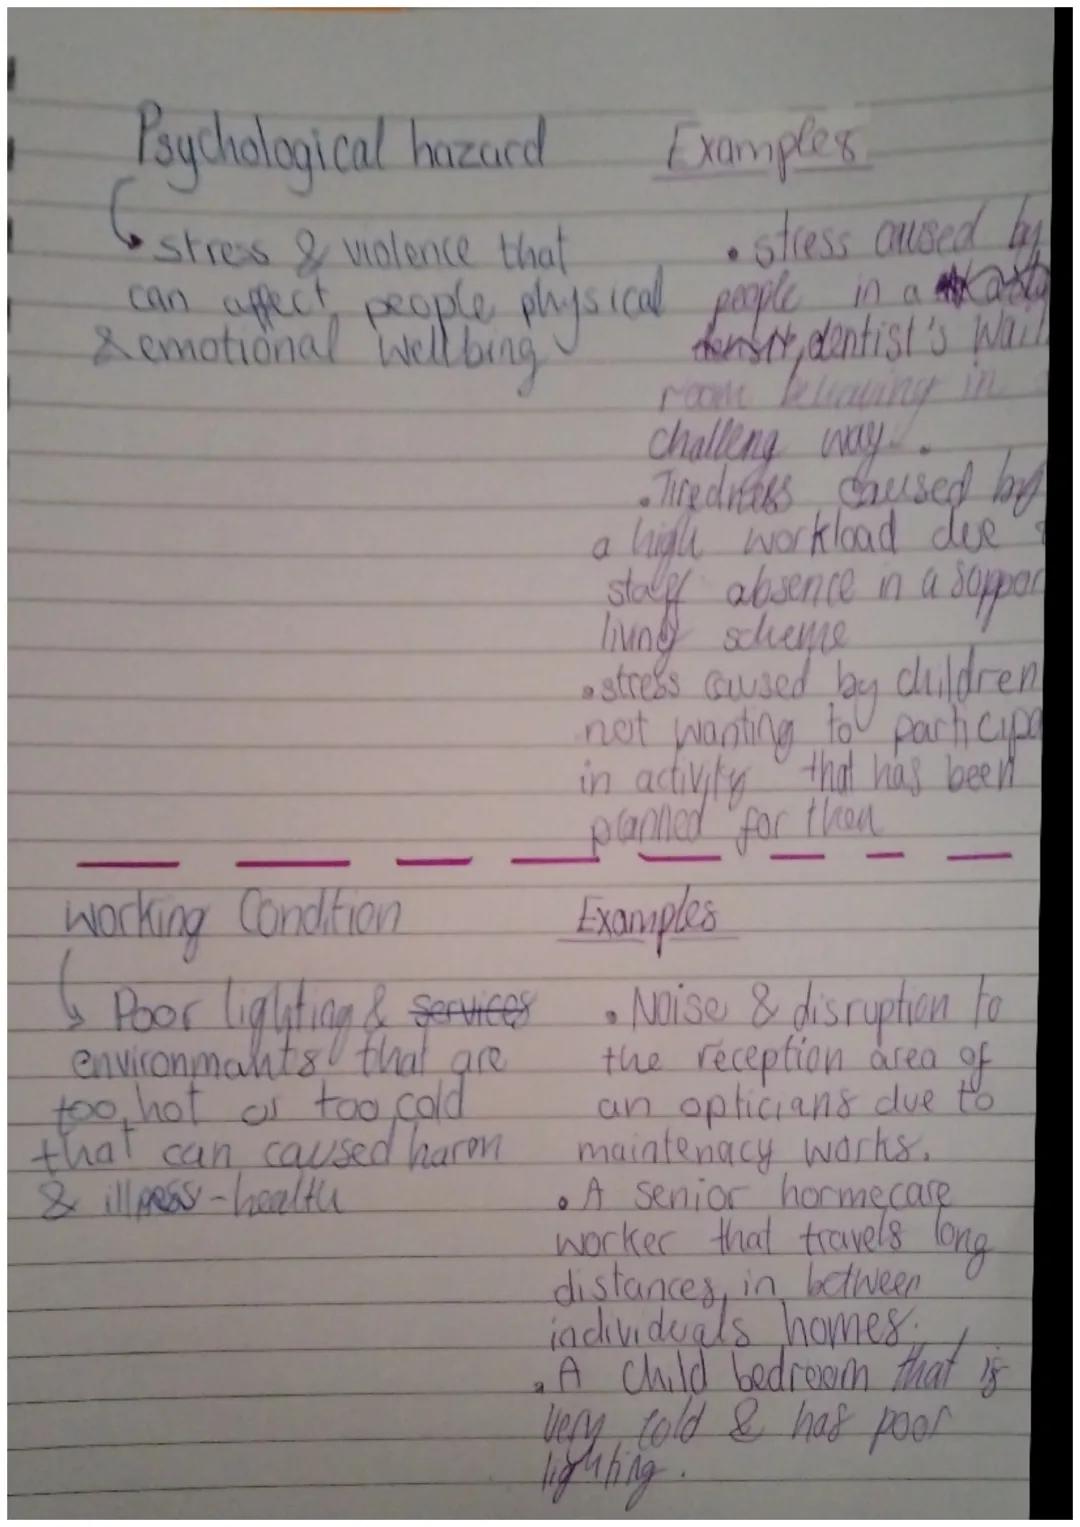 Psychological hazard
Examples
stress & violence that
can affect people physical
& emotional wellbing
• stress caused by
people in a
dentist's wait
room behaving in
challeng way.
• Tiredness caused by
a high workload due
staff absence in a suppor
living scheme
• stress caused by children
not wanting to participa
in activity that has been
planned for them
Working Condition
Examples
Poor lighting & services
environmants that are
too hot or too cold
that can caused harm
& illness-health
• Noise & disruption to
the reception area of
an opticians due to
maintenacy works.
• A senior homecare
worker that travels long
distances in between
individuals homes.
• A Child bedroom that is
very cold & has poor
lighting.